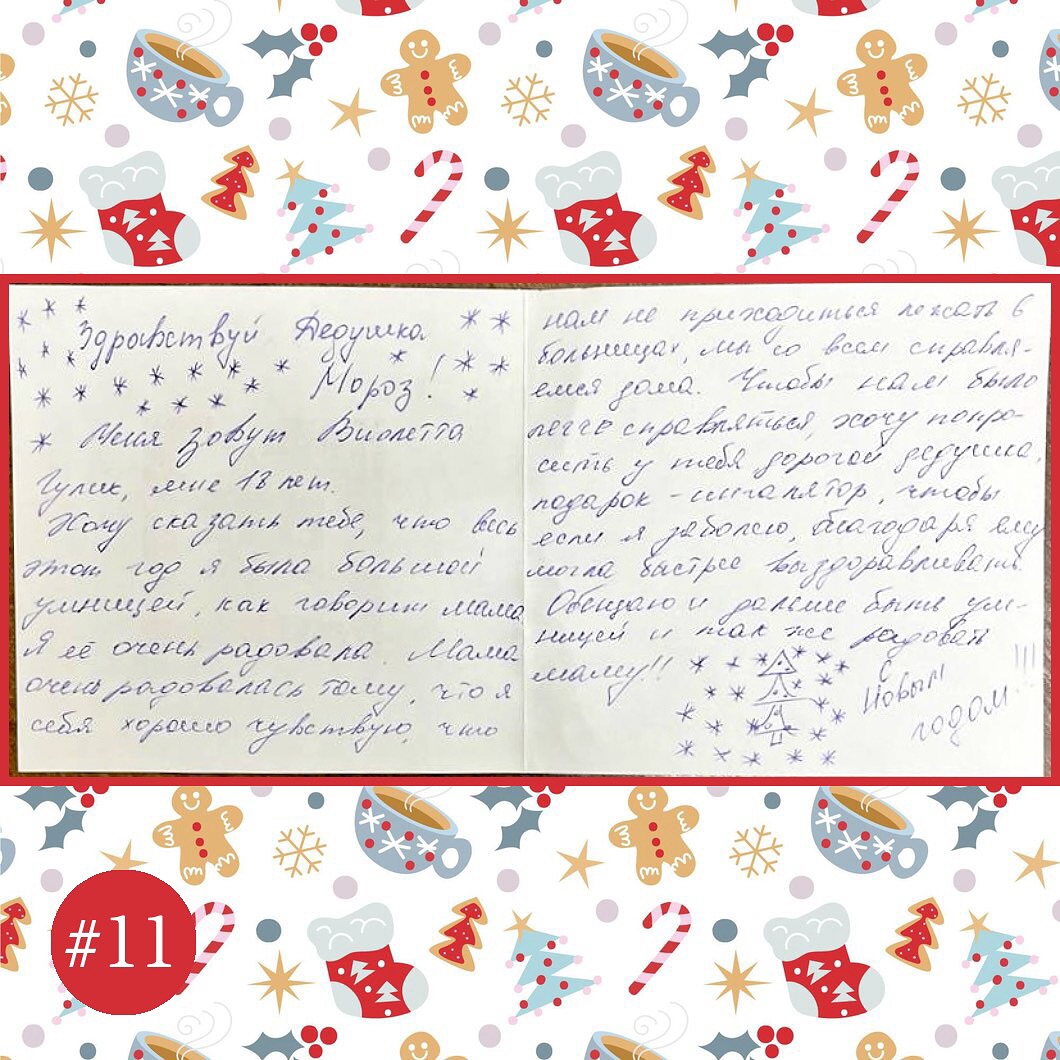 Здравствуй Дедушка
Мороз!
Меня зовут Виолетта
Гулик, мне 18 лет.
Хочу сказать тебе, что весь
этот год я была большой
умницей, как говорит мама
Я её очень радовала. Мама
очень радовалась тому, что я
себя хорошо чувствую, что
нам не приходиться лежать в
больницах, мы со всем справля-
емся дома. Чтобы нам было
легче справляться, хочу попро-
сить у тебя дорогой дедушка,
подарок - ингалятор, чтобы
если я заболею, благодаря ему
могла быстрее выздоравливать.
Обещаю и дальше быть ум-
ницей и так же радовать
маму!!
С
Новым
годом!!!
#11